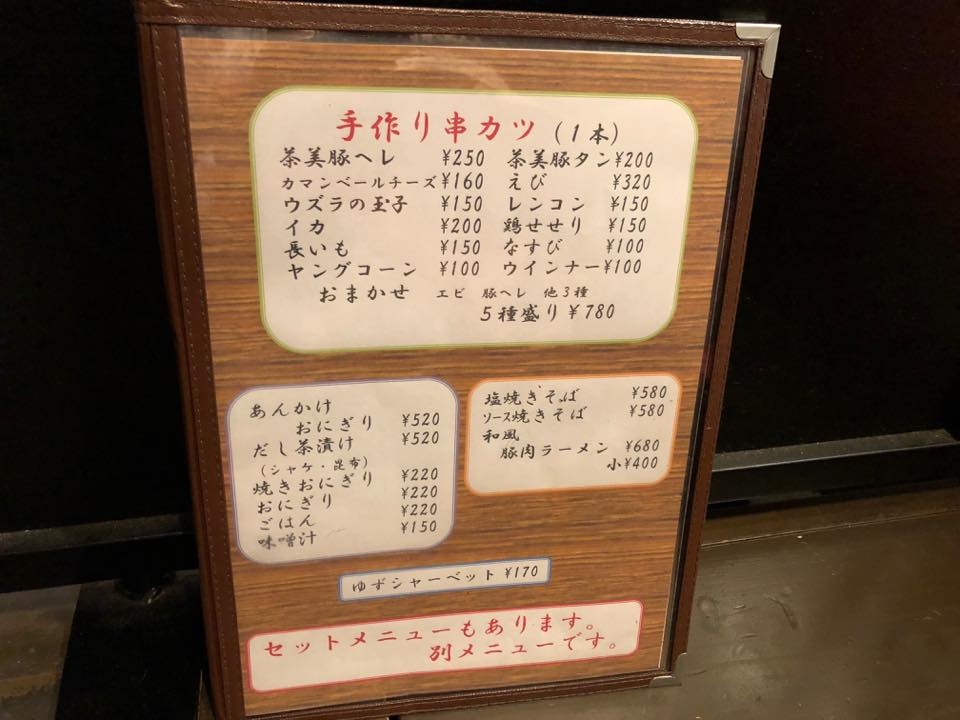 手作り串カツ（1本）
茶美豚ヘレ ¥250 茶美豚タン ¥200
カマンベールチーズ ¥160 えび ¥320
ウズラの玉子 ¥150 レンコン ¥150
イカ ¥200 鶏せせり ¥150
長いも ¥150 なすび ¥100
ヤングコーン ¥100 ウインナー ¥100
おまかせ エビ 豚ヘレ 他3種
5種盛り ¥780
あんかけ
おにぎり ¥520
だし茶漬け ¥520
（シャケ・昆布）
焼きおにぎり ¥220
おにぎり ¥220
ごはん ¥220
味噌汁 ¥150
塩焼きそば ¥580
ソース焼きそば ¥580
和風
豚肉ラーメン ¥680
小¥400
ゆずシャーベット ¥170
セットメニューもあります。
別メニューです。